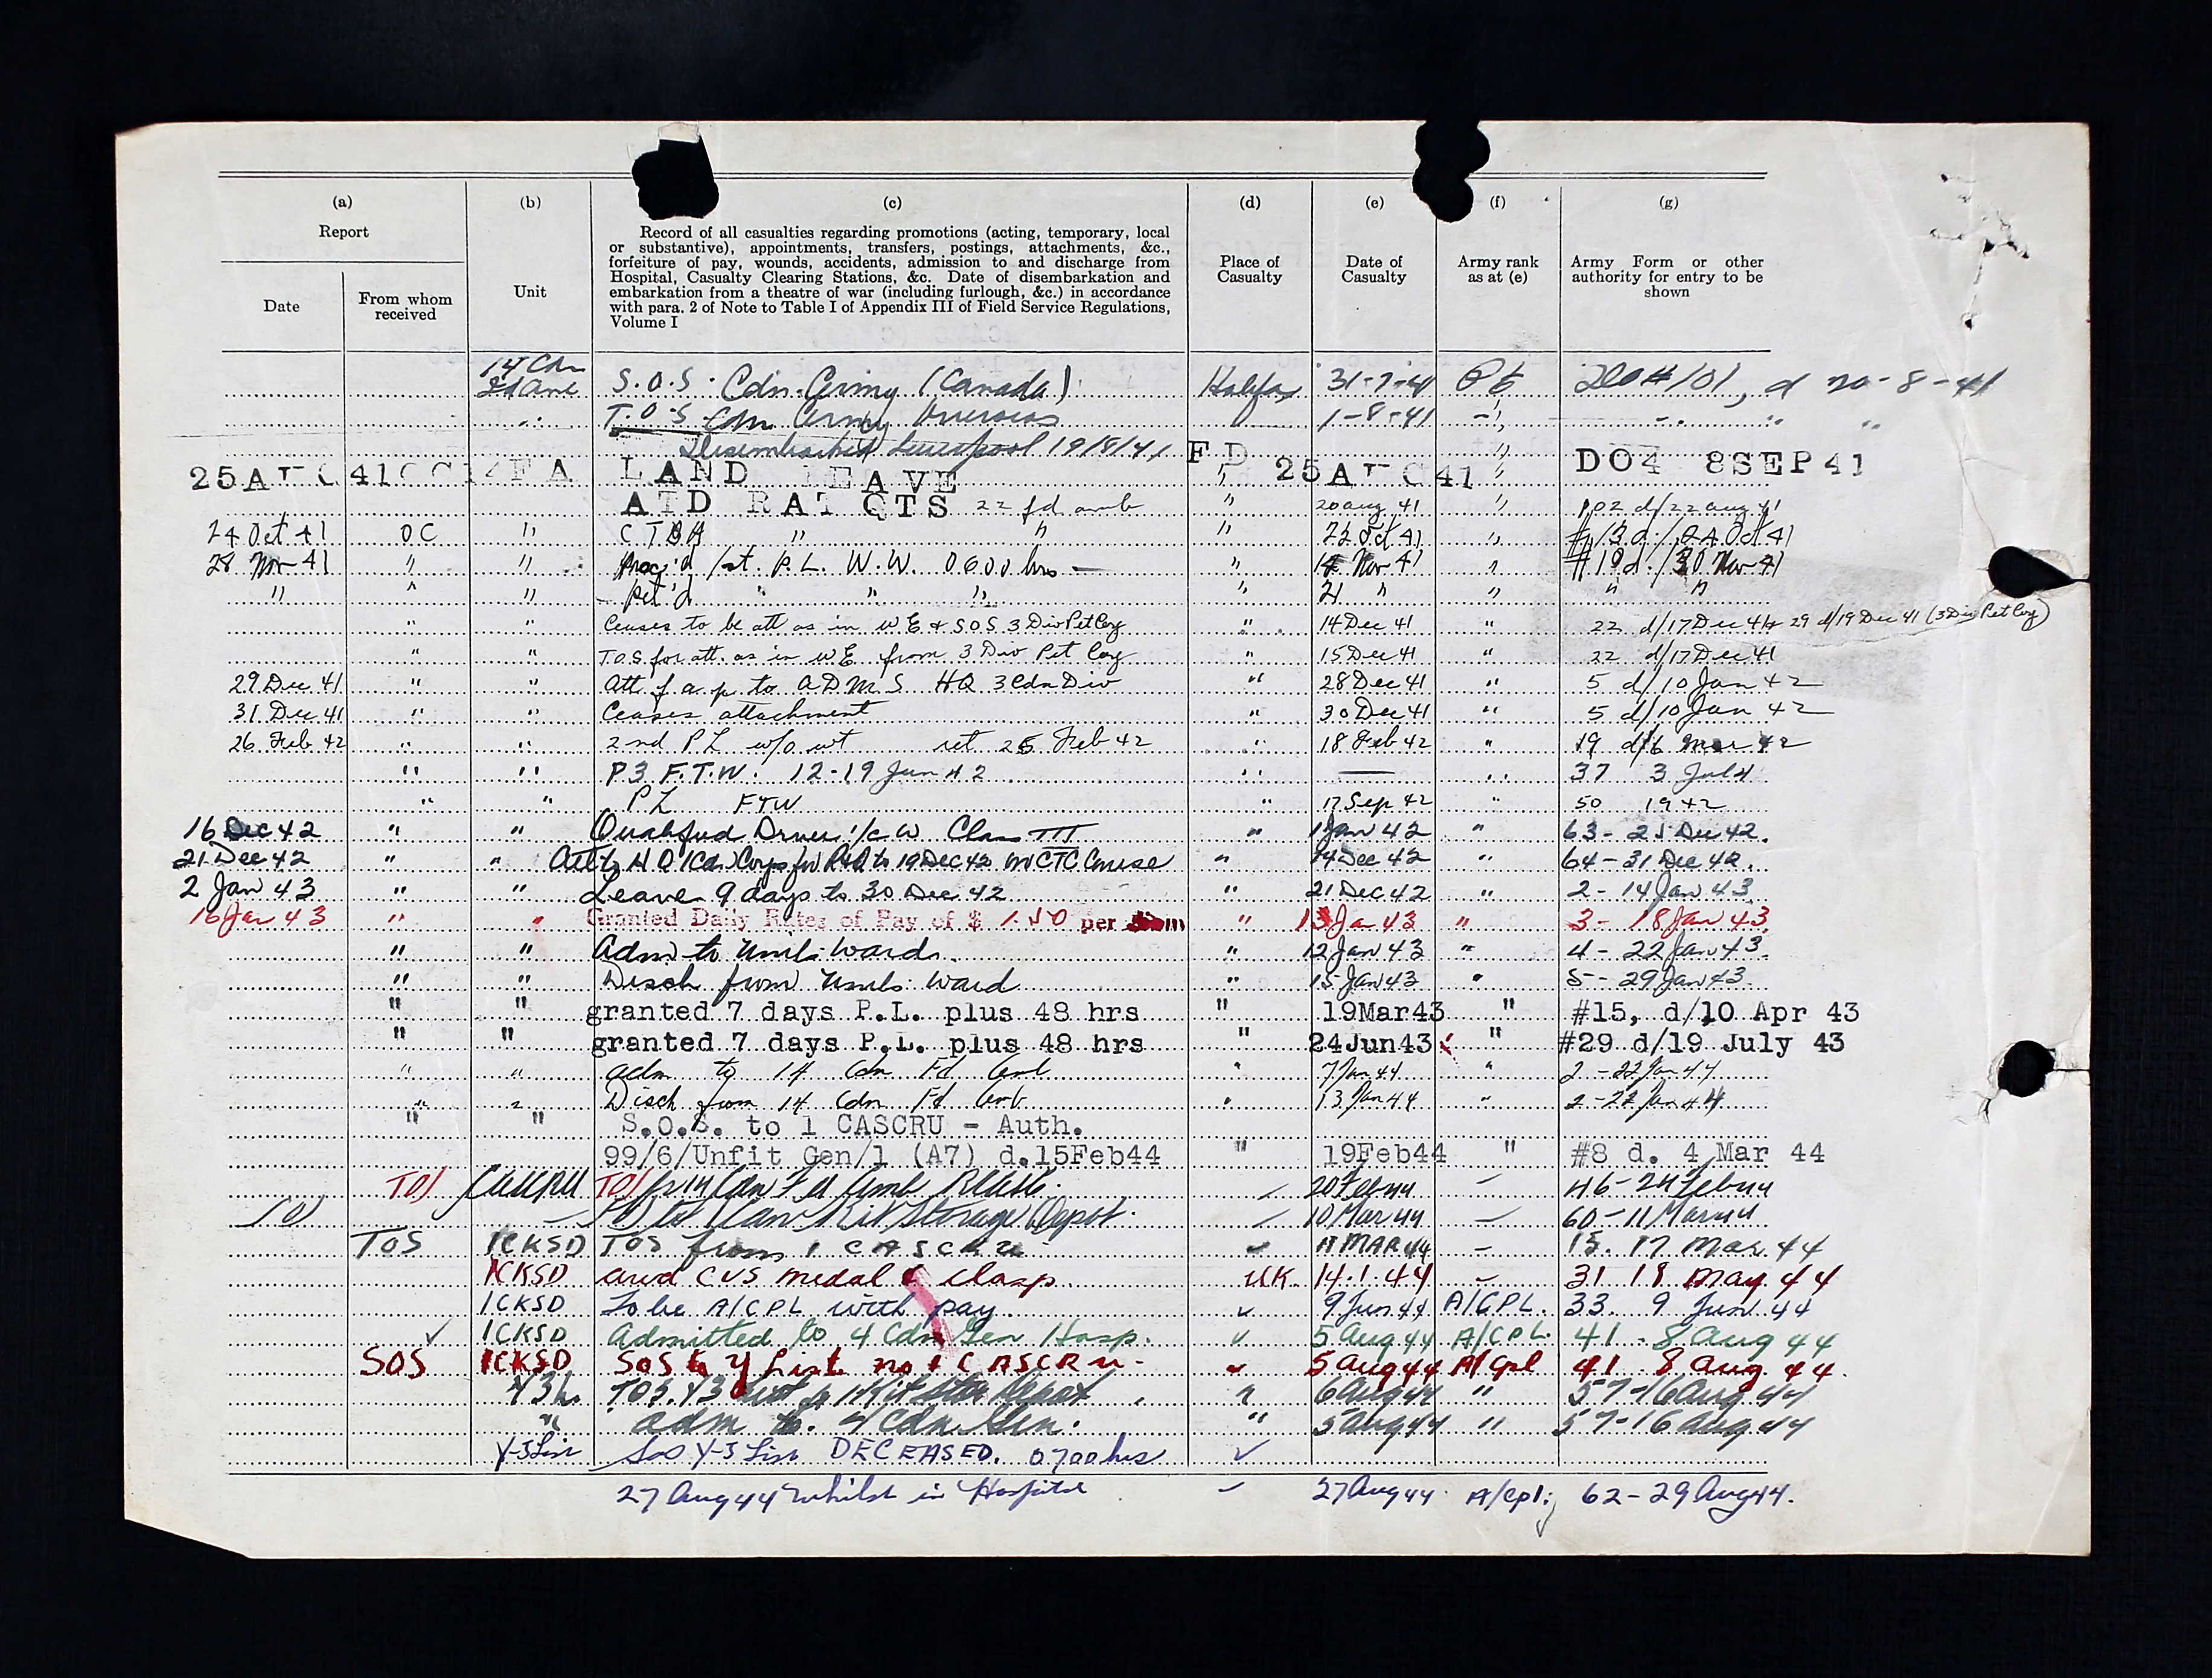 (a) (b) (c) (d) (e) (f) (g)
Report
Date
From whom received
Unit
Record of all casualties regarding promotions (acting, temporary, local
or substantive), appointments, transfers, postings, attachments, &c.,
forfeiture of pay, wounds, accidents, admission to and discharge from
Hospital, Casualty Clearing Stations, &c. Date of disembarkation and
embarkation from a theatre of war (including furlough, &c.) in accordance
with para. 2 of Note to Table I of Appendix III of Field Service Regulations,
Volume I
Place of Casualty
Date of Casualty
Army rank as at (e)
Army Form or other authority for entry to be shown
14 Cdn
S.O.S. Cdn. Army (Canada) Halifax 31-7-41 Pte #101, d 20-8-41
T.O.S. Cdn Army Overseas 1-8-41 " " "
Disembarked Liverpool 19/8/41 "
LAND LEAVE FD " DO4 8SEP41
ATD RAT QTS 22 fd amb " 20 Aug 41 " 102 d/22 Aug 41
24 Oct 41 OC " " " " 22 Oct 41 " #13 d/24 Oct 41
28 Nov 41 " " Proc'd 1st. P.L. W.W. 0600 hrs — " Nov 41 " #19 d/30 Nov 41
" " " Ret'd " " " " 21 " " " "
" " Ceases to be att as in WE & SOS 3 Div Pet Coy " 14 Dec 41 " 22 d/17 Dec 41 & 29 d/19 Dec 41 (3 Div Pet Coy)
" " T.O.S for att. as in WE from 3 Div Pet Coy " 15 Dec 41 " 22 d/17 Dec 41
29 Dec 41 " " Att f a p to ADMS HQ 3 Cdn Div " 28 Dec 41 " 5 d/10 Jan 42
31 Dec 41 " " Ceases attachment " 30 Dec 41 " 5 d/10 Jan 42
26 Feb 42 " " 2nd P L w/o wt ret 25 Feb 42 " 18 Feb 42 " 19 d/6 Mar 42
" " P3 F.T.W. 12-19 Jun 42 " — " 37 3 Jul
" " PL FTW " 17 Sep 42 " 50 1942
16 Dec 42 " " Qualified Driver i/c W Class III " Jan 42 " 63- 25 Dec 42.
21 Dec 42 " " to 19 Dec 42 CTC Course " 14 Dec 42 " 64-31 Dec 42.
2 Jan 43 " " Leave 9 days to 30 Dec 42 " 21 Dec 42 " 2- 14 Jan 43.
16 Jan 43 " " Granted Daily Rates of Pay of $ 1.50 per " 13 Jan 43 " 3- 18 Jan 43.
" " Adm to Ward. " 12 Jan 43 " 4- 22 Jan 43.
" " Disch from Ward " 15 Jan 43 " 5- 29 Jan 43.
" " granted 7 days P.L. plus 48 hrs " 19Mar43 " #15, d/10 Apr 43
" " granted 7 days P.L. plus 48 hrs " 24Jun43 " #29 d/19 July 43
" " Adm to 14 Cdn Fd Amb " 7 Jan 44 " 2 -22 Jan 44
" " Disch from 14 Cdn Fd Amb " 13 Jan 44 " 2-22 Jan 44
" " S.O.S. to 1 CASCRU - Auth.
99/6/Unfit Gen/1 (A7) d.15Feb44 " 19Feb44 " #8 d. 4 Mar 44
TOS TOS 14 Cdn Fd Amb 20 Feb 44 46-24 Feb 44
Kit Storage Depot. 10 Mar 44 60-11 Mar 44
TOS 1CKSD TOS from 1 CASCRU MAR 44 15. 17 Mar. 44
1CKSD awd CVS medal & clasp UK. 14.1.44 31 18 May 44
1CKSD To be A/CPL with pay 9 Jun 44 A/CPL. 33. 9 Jun. 44
1CKSD Admitted to 4 Cdn Gen Hosp. 5 Aug 44 A/CPL. 41. 8 Aug 44
SOS 1CKSD SOS to Y List no 1 CASCRU. 5 Aug 44 A/Cpl 41. 8 Aug 44.
TOS. Y3 List 6 Aug 44 " 57-16 Aug 44
" adm to. 4 Cdn Gen. " 5 Aug 44 " 57-16 Aug 44
Y-3 List SOS Y-3 List DECEASED. 0700 hrs
27 Aug 44 whilst in Hospital 27 Aug 44. A/Cpl. 62-29 Aug 44.